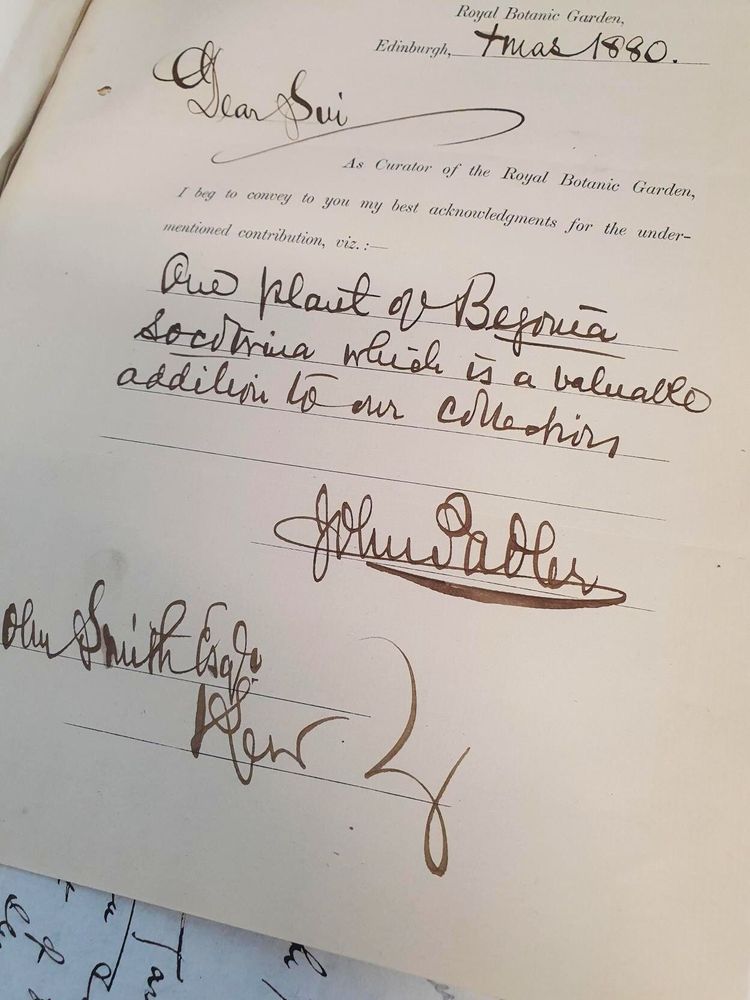 Royal Botanic Garden,
Edinburgh, Xmas 1880.
Dear Sir
As Curator of the Royal Botanic Garden,
I beg to convey to you my best acknowledgments for the under-
mentioned contribution, viz.:—
One plant of Begonia
socotrina which is a valuable
addition to our collections
John Sadler
John Smith Esqr
Kew